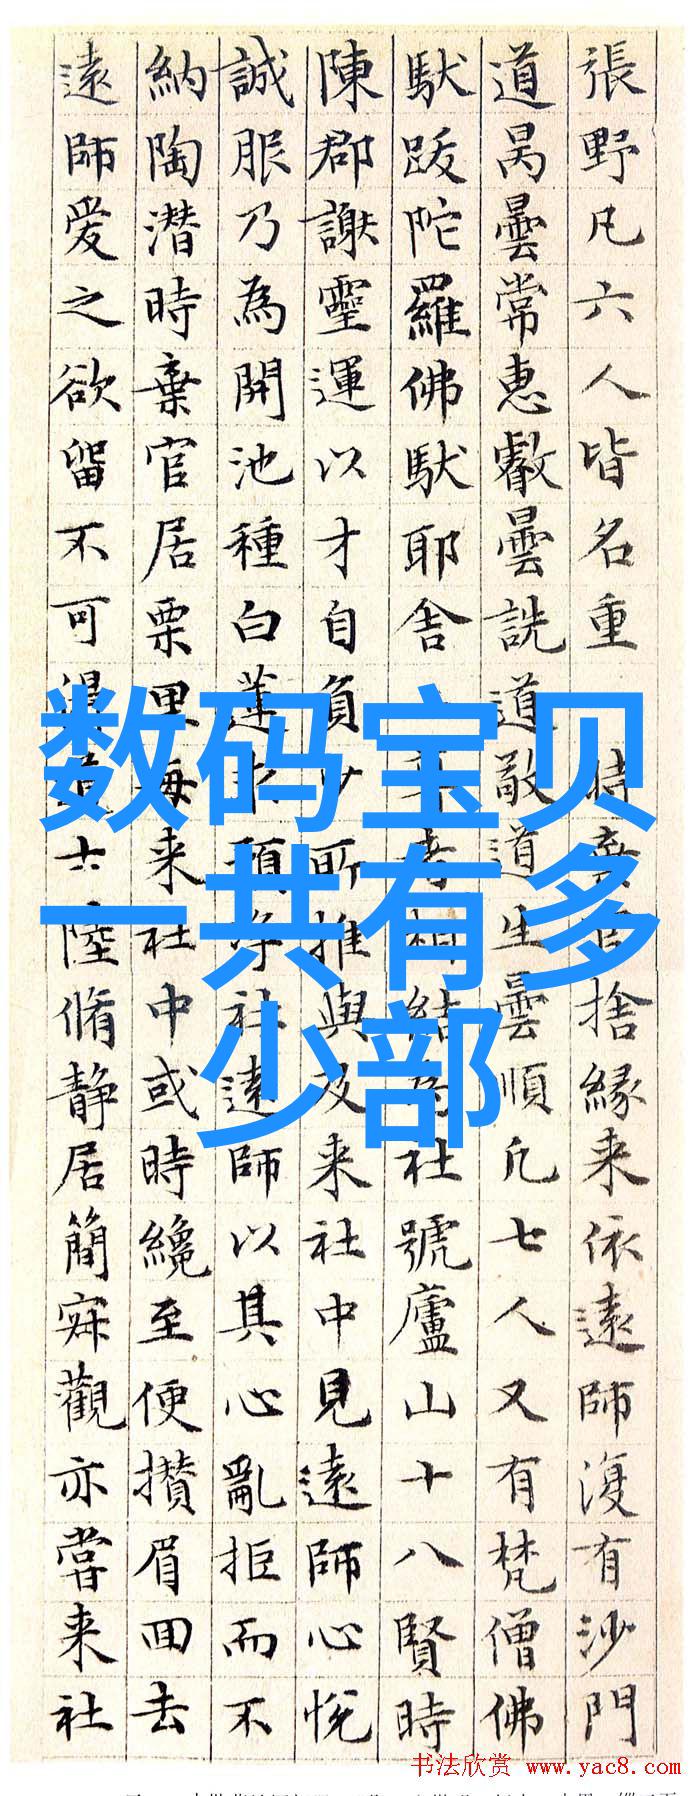 張野凡六人皆名重 時棄官捨緣来依遠師復有沙門
道昺曇常惠叡曇詵道敬道生曇順凡七人又有梵僧佛
馱跋陀羅佛馱耶舍 相結為社號廬山十八賢時
陳郡謝靈運以才自負少所推與及来社中見遠師心悅
誠服乃為開池種白蓮求預净社遠師以其心亂拒而不
納陶潛時棄官居栗里每来社中或時纔至便攢眉回去
遠師爱之欲留不可得道士陸脩静居簡寂觀亦嘗来社
数码宝贝
一共有多
少部
书法欣赏 www.yac8.com